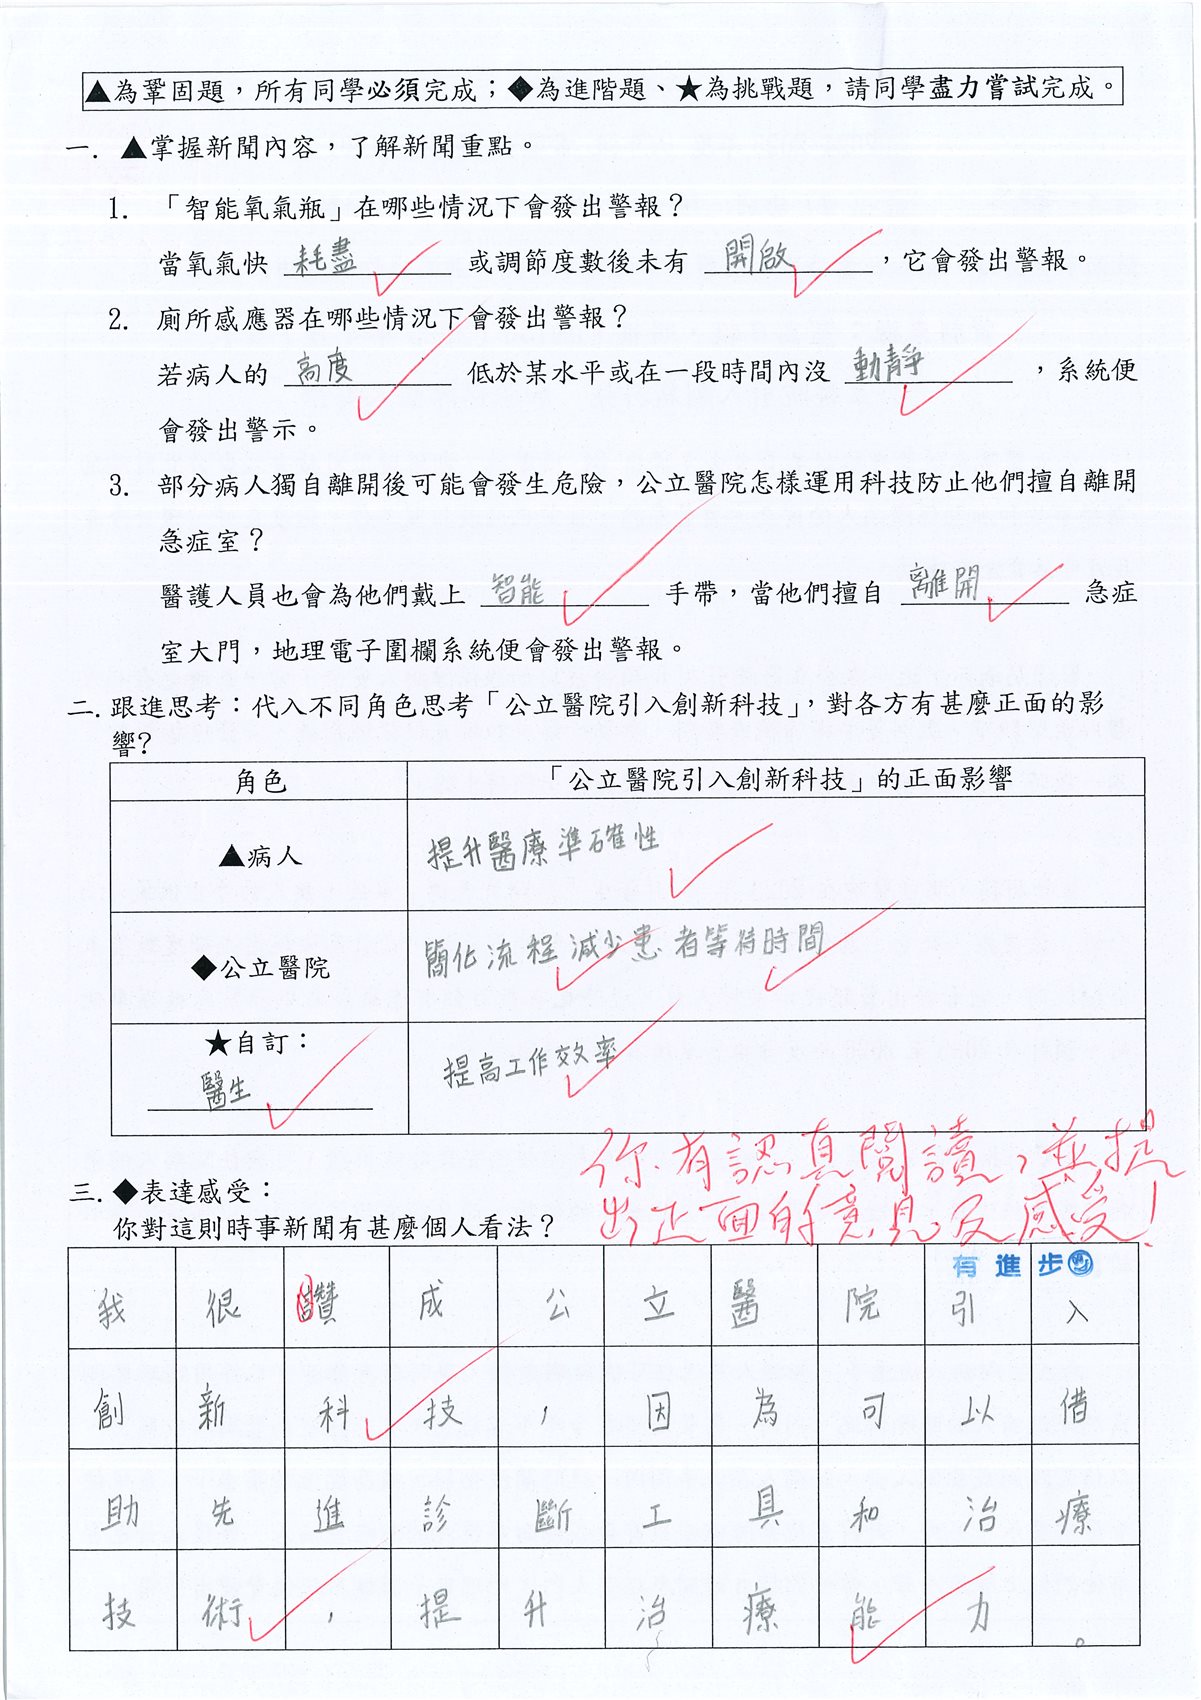 ▲為鞏固題，所有同學必須完成；◆為進階題、★為挑戰題，請同學盡力嘗試完成。
一. ▲掌握新聞內容，了解新聞重點。
1. 「智能氧氣瓶」在哪些情況下會發出警報？
當氧氣快 耗盡 或調節度數後未有 開啟 ，它會發出警報。
2. 廁所感應器在哪些情況下會發出警報？
若病人的 高度 低於某水平或在一段時間內沒 動靜 ，系統便
會發出警示。
3. 部分病人獨自離開後可能會發生危險，公立醫院怎樣運用科技防止他們擅自離開
急症室？
醫護人員也會為他們戴上 智能 手帶，當他們擅自 離開 急症
室大門，地理電子圍欄系統便會發出警報。
二. 跟進思考：代入不同角色思考「公立醫院引入創新科技」，對各方有甚麼正面的影
響?
角色 「公立醫院引入創新科技」的正面影響
▲病人 提升醫療準確性
◆公立醫院 簡化流程減少患者等待時間
★自訂：
醫生 提高工作效率
你有認真閱讀，並提
出正面的意見及感受！
三. ◆表達感受：
你對這則時事新聞有甚麼個人看法？
有進步
我很讚成公立醫院引入
創新科技，因為可以借
助先進診斷工具和治療
技術，提升治療能力。